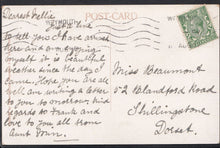 Dearest Nellie
POST CARD
Just a line
to tell you I have arrived
here and am enjoying
myself it is beautiful
weather since the day I
came. Hope you are all
well am writing a letter
to you to-morrow kind
regards to Frank and
love to you all from
Aunt Min.
Miss Beaumont
52 Blandford Road
Shillingstone
Dorset